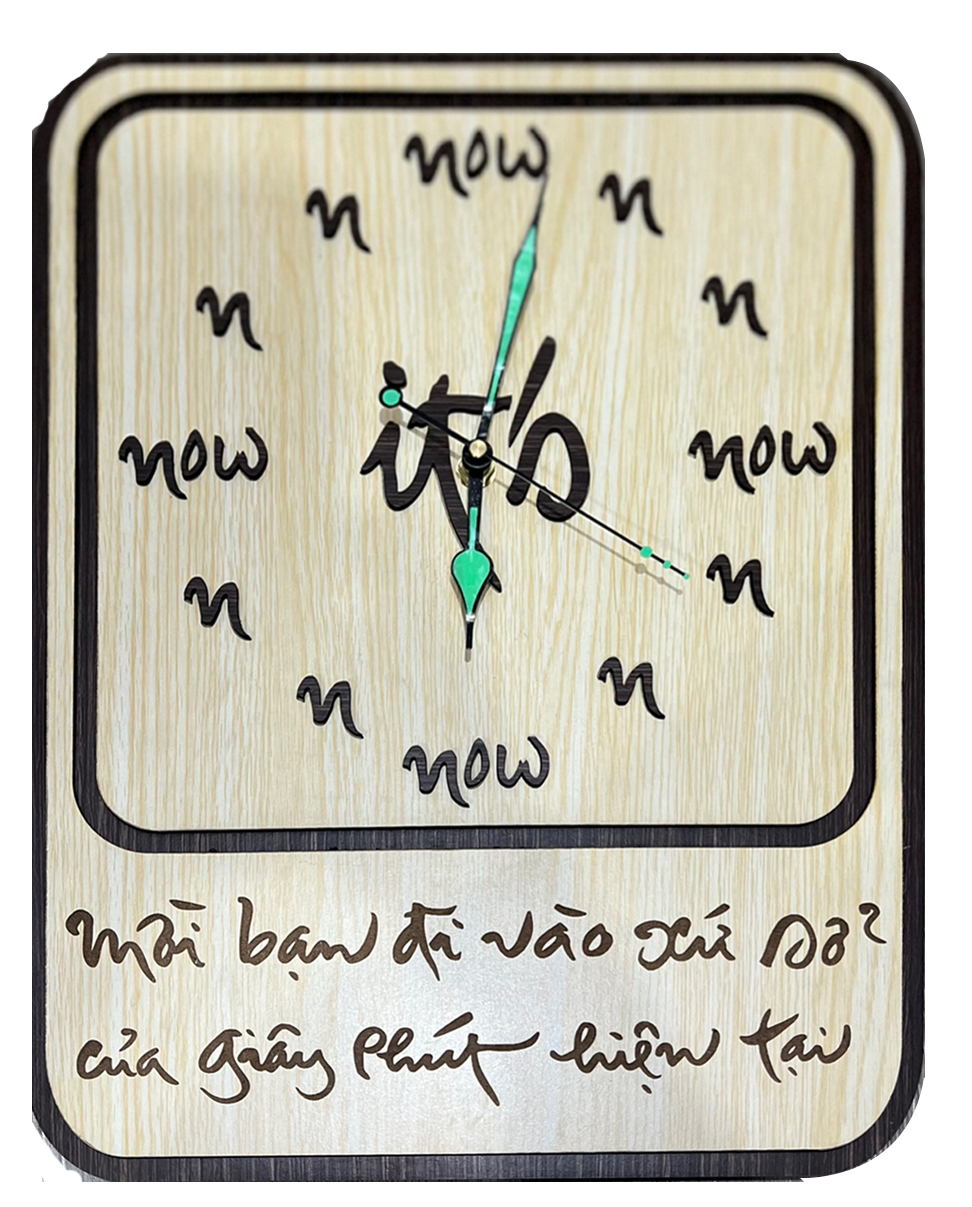 now
n n
n n
it's
now now
n n
n n
now
mời bạn đi vào xứ sở
của giây phút hiện tại